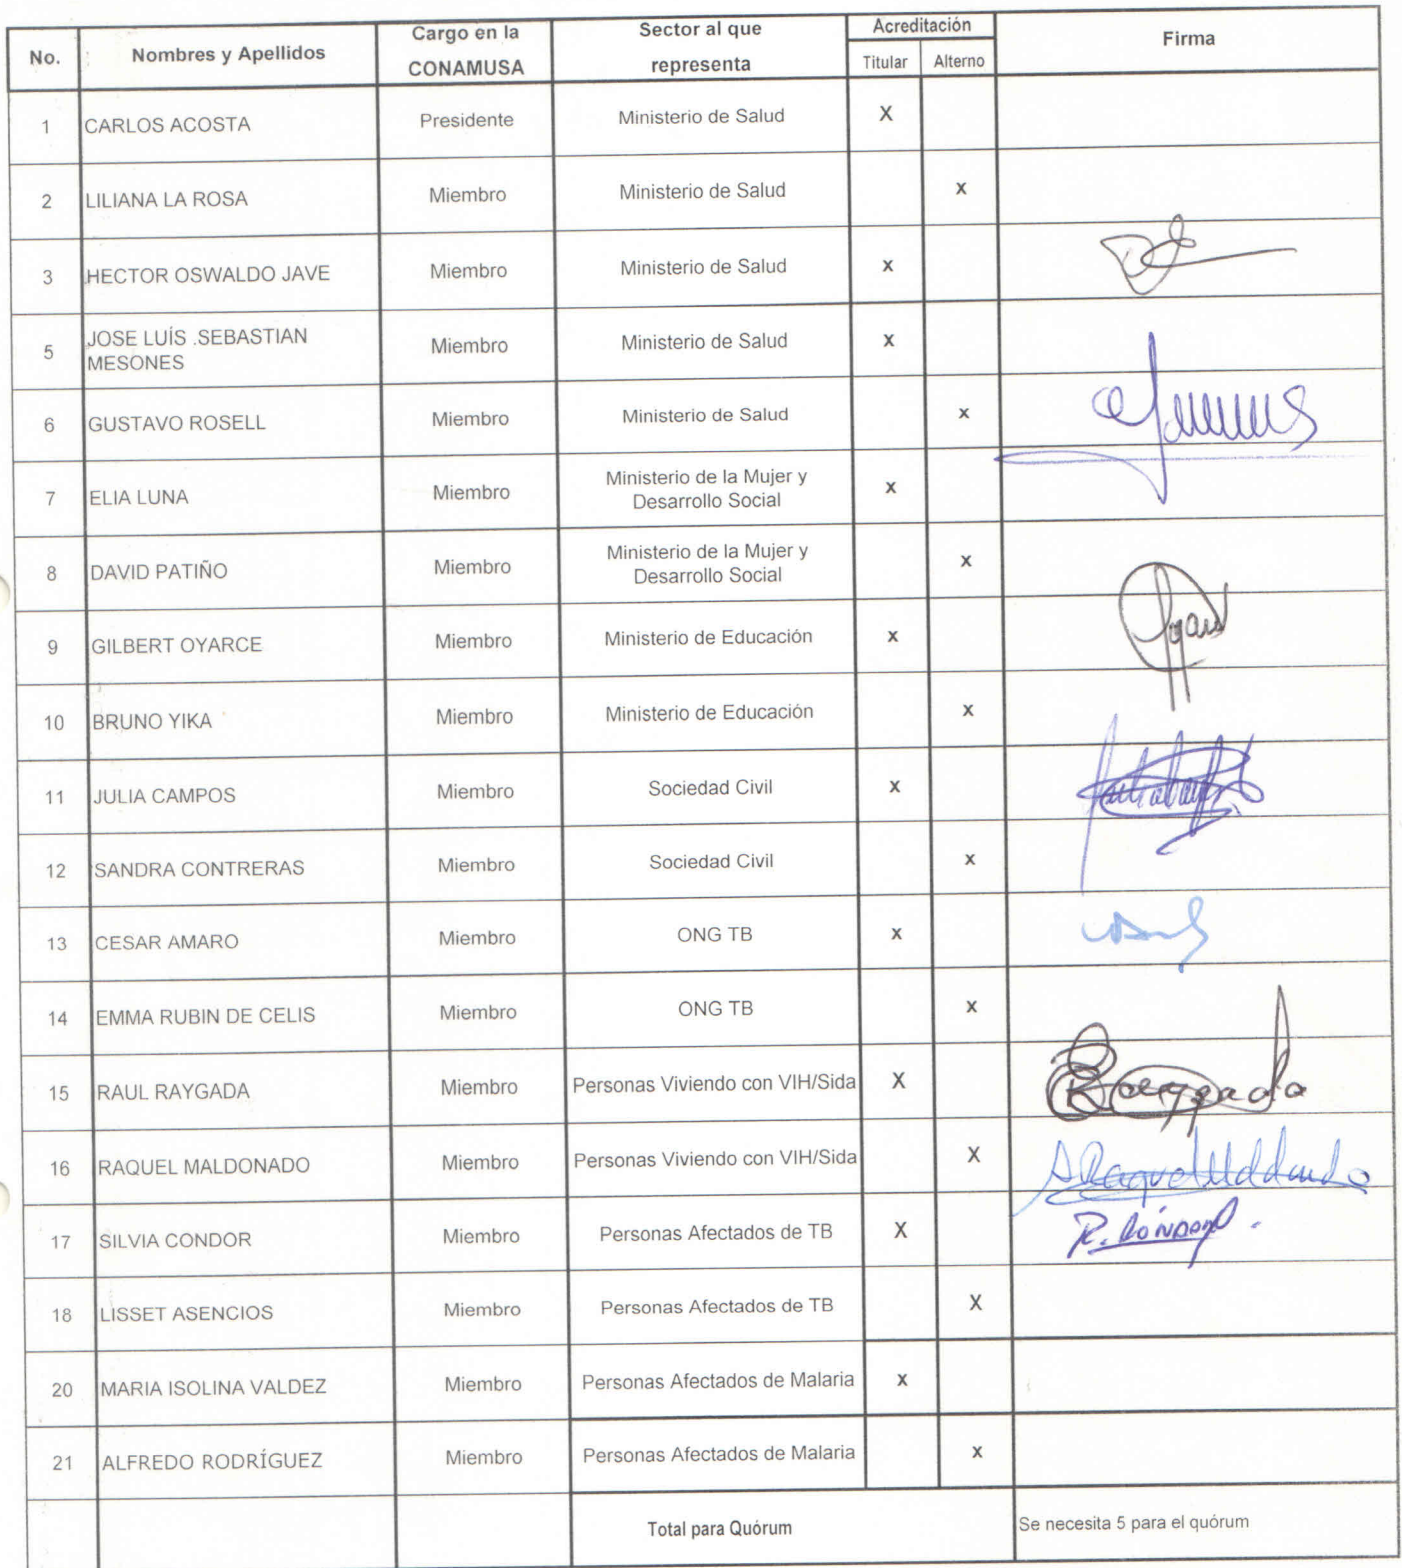 No. Nombres y Apellidos Cargo en la CONAMUSA Sector al que representa Acreditación Firma
Titular Alterno
1 CARLOS ACOSTA Presidente Ministerio de Salud X
2 LILIANA LA ROSA Miembro Ministerio de Salud X
3 HECTOR OSWALDO JAVE Miembro Ministerio de Salud X
5 JOSE LUÍS .SEBASTIAN MESONES Miembro Ministerio de Salud X
6 GUSTAVO ROSELL Miembro Ministerio de Salud X
7 ELIA LUNA Miembro Ministerio de la Mujer y Desarrollo Social X
8 DAVID PATIÑO Miembro Ministerio de la Mujer y Desarrollo Social X
9 GILBERT OYARCE Miembro Ministerio de Educación X
10 BRUNO YIKA Miembro Ministerio de Educación X
11 JULIA CAMPOS Miembro Sociedad Civil X
12 SANDRA CONTRERAS Miembro Sociedad Civil X
13 CESAR AMARO Miembro ONG TB X
14 EMMA RUBIN DE CELIS Miembro ONG TB X
15 RAUL RAYGADA Miembro Personas Viviendo con VIH/Sida X
16 RAQUEL MALDONADO Miembro Personas Viviendo con VIH/Sida X
17 SILVIA CONDOR Miembro Personas Afectados de TB X
18 LISSET ASENCIOS Miembro Personas Afectados de TB X
20 MARIA ISOLINA VALDEZ Miembro Personas Afectados de Malaria X
21 ALFREDO RODRÍGUEZ Miembro Personas Afectados de Malaria X
Total para Quórum Se necesita 5 para el quórum